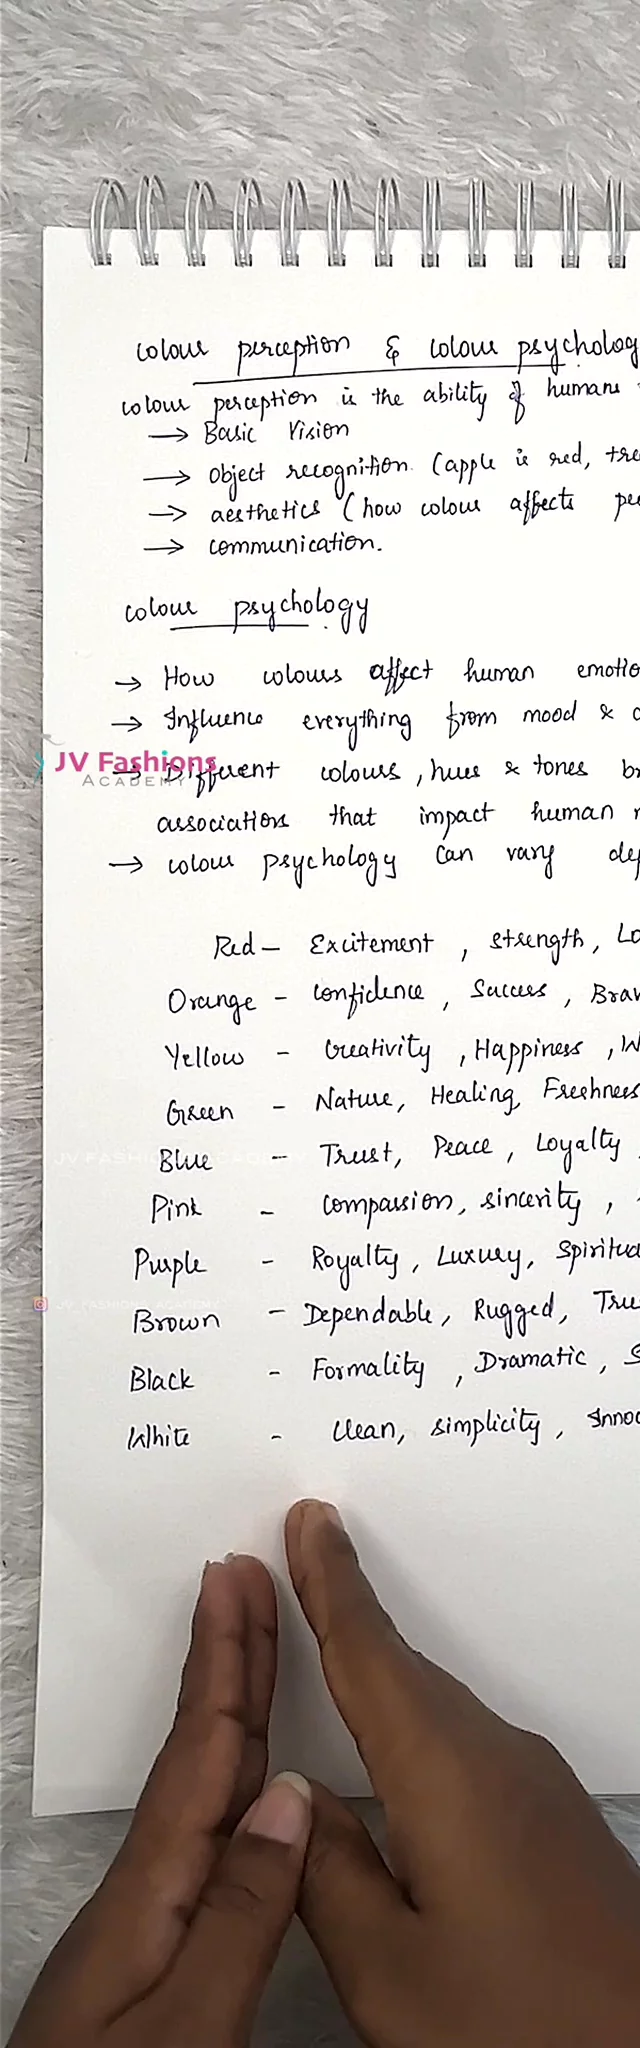 colour perception & colour psycholog
colour perception is the ability of humans
→ Basic Vision
→ object recognition. (apple is red, tre
→ aesthetics (how colour affects pe
→ communication.
colour psychology
→ How colours affect human emotio
→ Influence everything from mood &
JV Fashions
ACADEMY
→ Different colours, hues & tones br
associations that impact human
→ colour psychology can vary dep
Red - Excitement, strength, Lo
Orange - confidence, Success, Brav
Yellow - Creativity, Happiness, W
Green - Nature, Healing, Freshness
JV FASHIONS ACADEMY
Blue - Trust, Peace, Loyalty
Pink - compassion, sincerity,
Purple - Royalty, Luxury, Spiritua
JV_FASHIONS_ACADEMY
Brown - Dependable, Rugged, Trus
Black - Formality, Dramatic, S
White - Clean, simplicity, Innoc